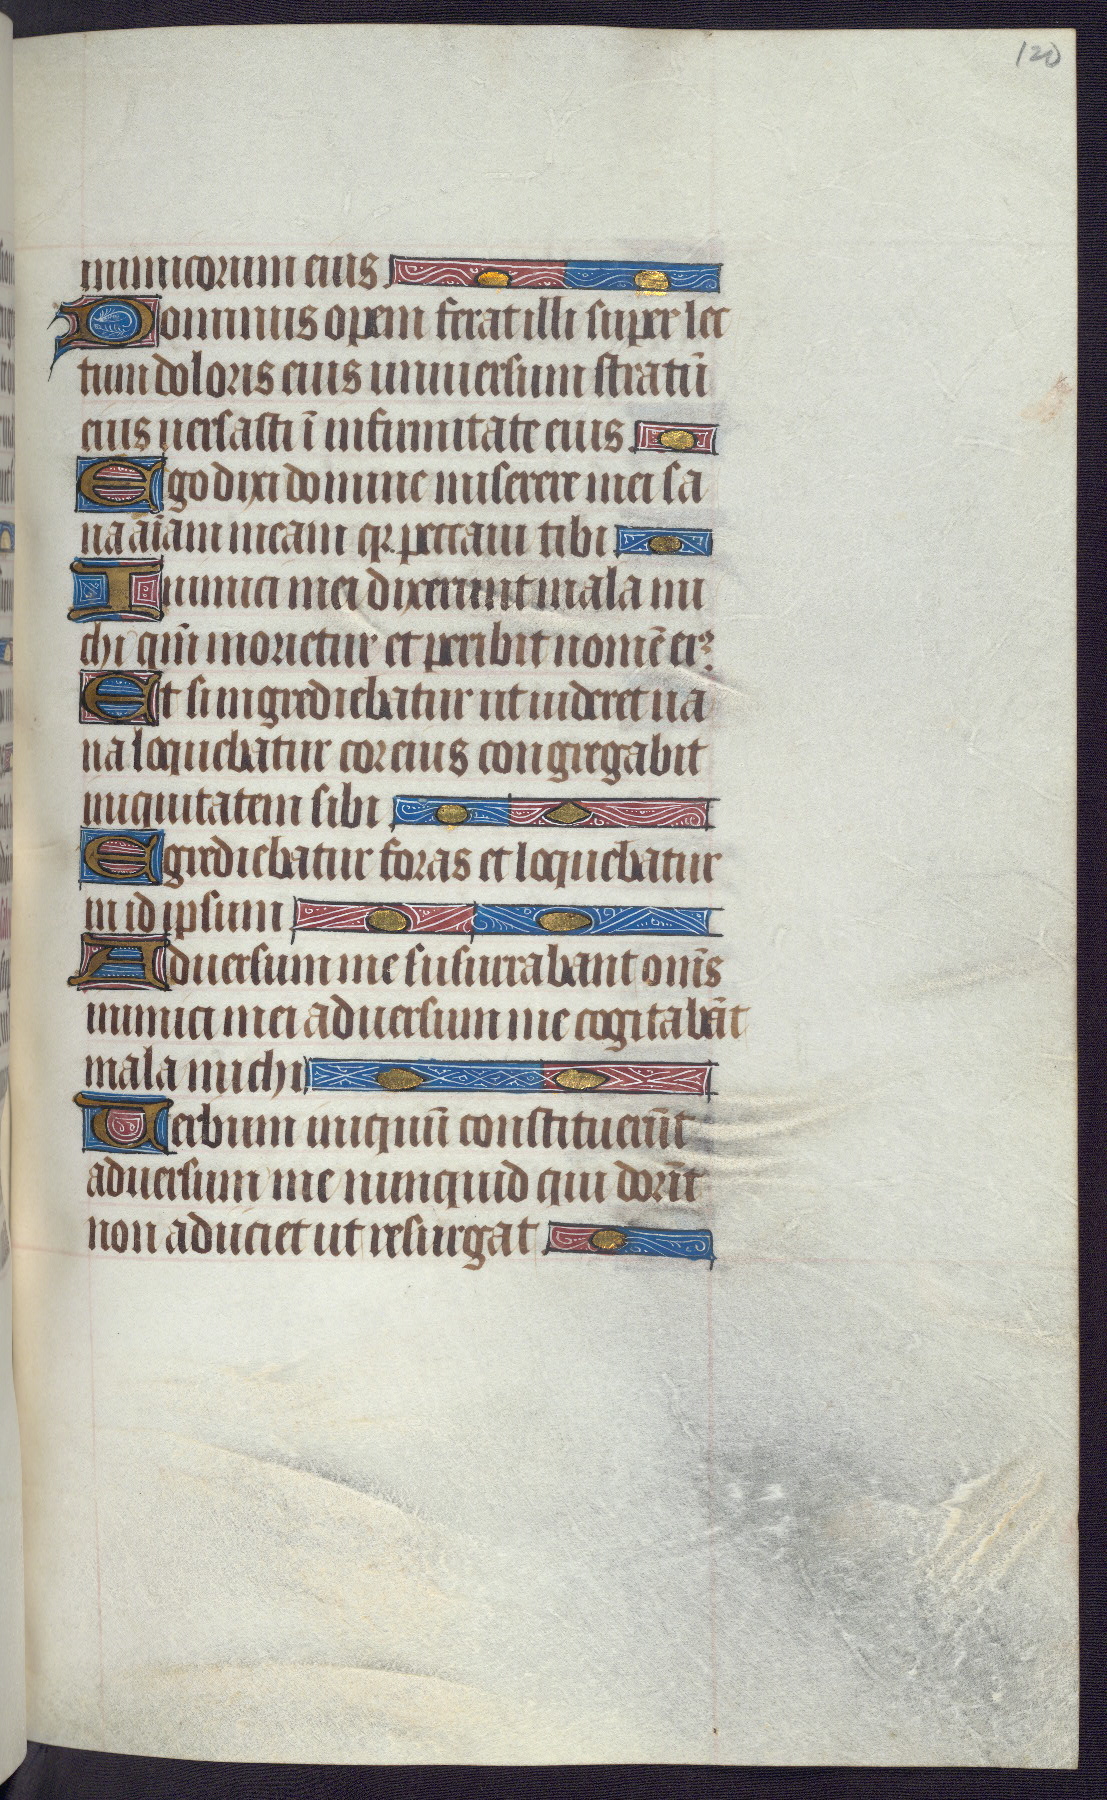 120
inimicorum eius
Dominus opem ferat illi super lec
tum doloris eius universum stratū
eius versasti ī infirmitate eius
Ego dixi domine miserere mei sa
na aīam meam qr peccavi tibi
Inimici mei dixerunt mala mi
chi qñ morietur et peribit nomē eiꝰ
Et si ingrediebatur ut videret va
na loquebatur cor eius congregabit
iniquitatem sibi
Egrediebatur foras et loquebatur
in id ipsum
Adversum me susurrabant om̄s
inimici mei adversum me cogitabāt
mala michi
Verbum iniquū constituerūt
adversum me nunquid qui dorīt
non adiciet ut resurgat